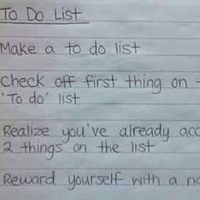 To Do List
Make a to do list
Check off first thing on
'To do' list
Realize you've already
2 things on the list
Reward yourself with a